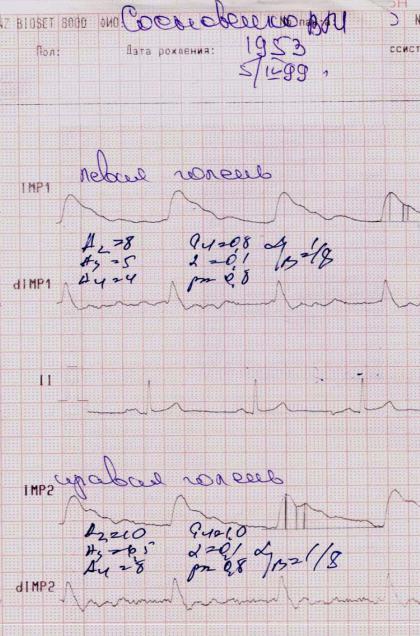 BIOSET 8000 ФИО: Сосновенко ВМ
Пол: Дата рождения: 1953 ссист
5/IV-99
левая голень
IMP1
A2=8 Qч=0,8 α/β=1/8
A3=5 α=0,1
A4=4 рп=0,8
dIMP1
II
правая голень
IMP2
A2=10 Qч=1,0
A3=6,5 α=0,1 α/β=1/8
A4=8 рп=0,8
dIMP2